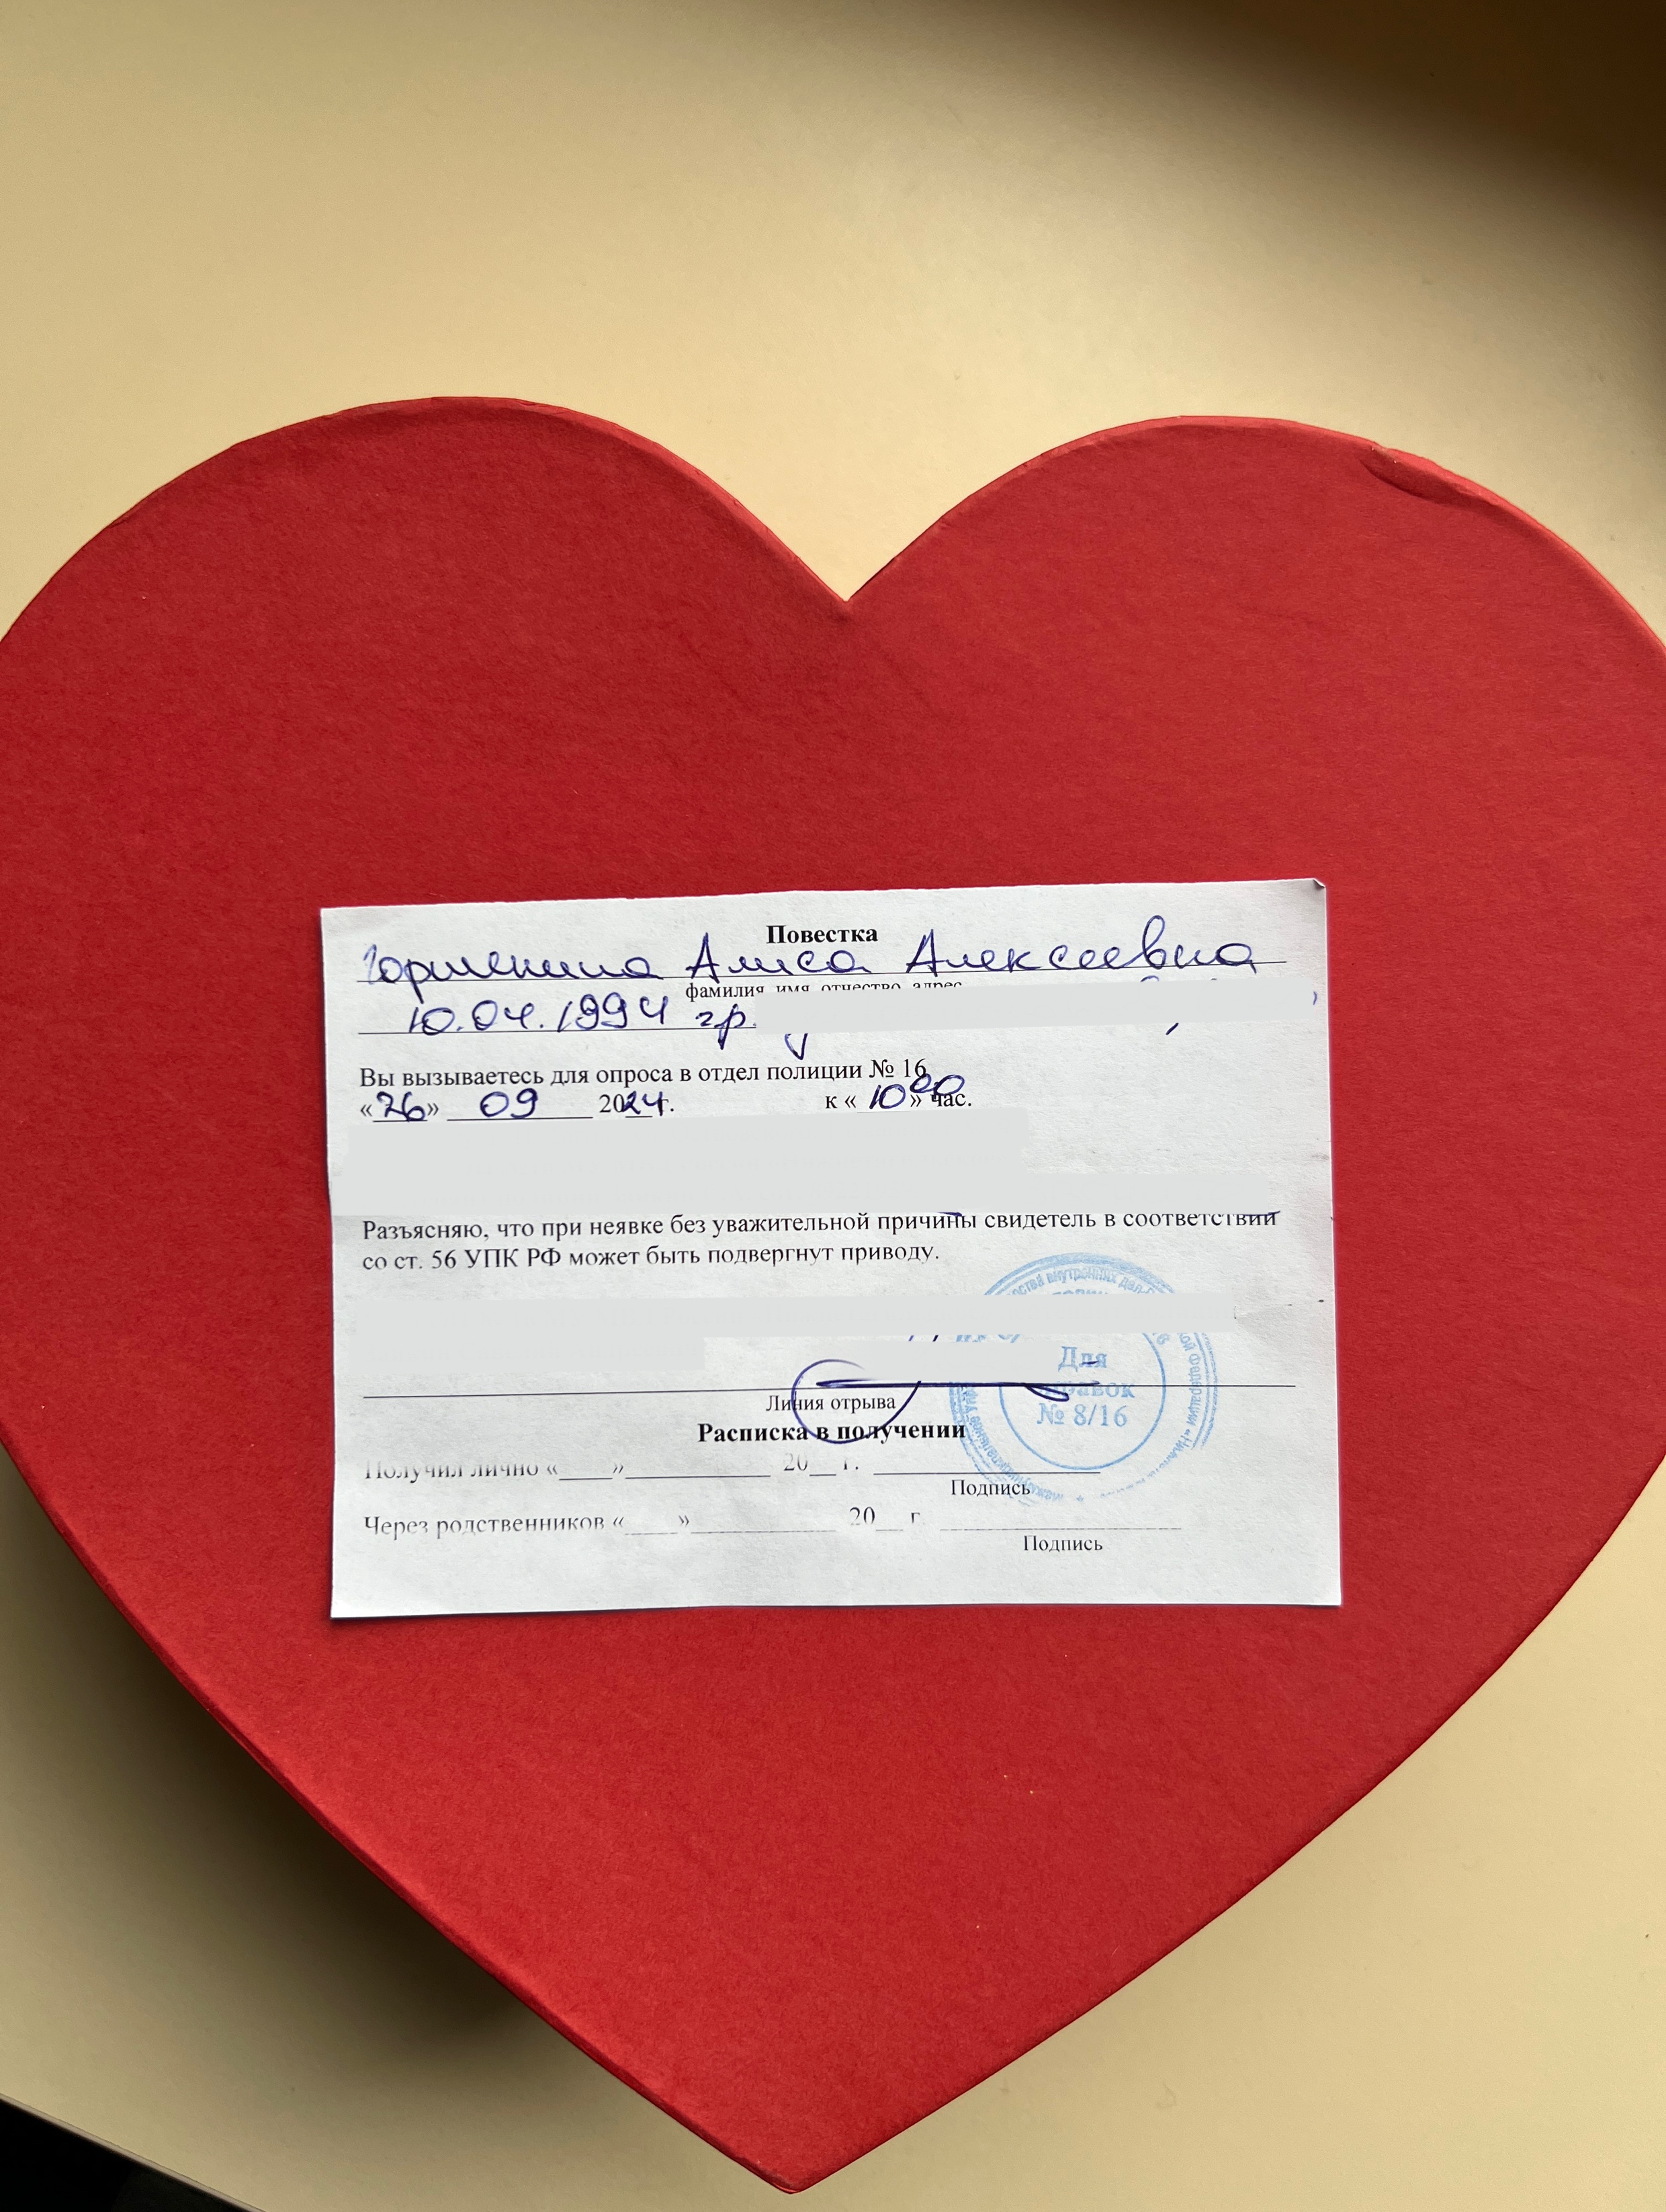 Повестка
Горшенина Алиса Алексеевна
фамилия, имя, отчество, адрес
10.04.1994 гр.
Вы вызываетесь для опроса в отдел полиции № 16
«26» 09 2024 г. к «10⁰⁰» час.
Разъясняю, что при неявке без уважительной причины свидетель в соответствии
со ст. 56 УПК РФ может быть подвергнут приводу.
Для
№ 8/16
Линия отрыва
Расписка в получении
Получил лично «____»____________ 20__ г. ____________
Подпись
Через родственников «____»____________ 20__ г. ____________
Подпись